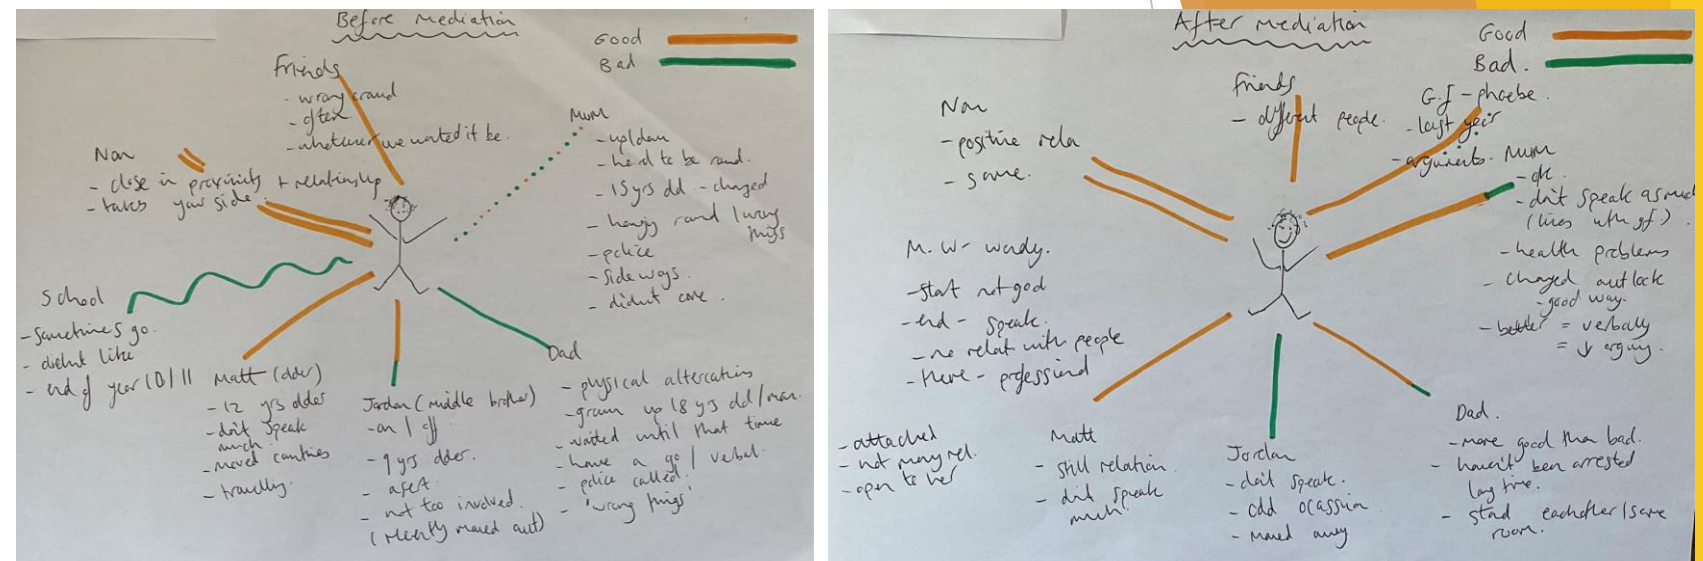 Before mediation
Good
Bad
Friends
- wrong crowd
- often
- whatever we wanted it be.
Mum
- up/down
- hard to be round.
- 15 yrs old - changed
- hanging round / wrong
things
- police
- sideways.
- didnt care.
Nan
- close in proximity + relationship
- takes your side.
School
- sometimes go.
- didnt like
- end of year 10/11
Matt (older)
- 12 yrs older
- don't speak
much
- moved countries
- travelling.
Jordan (middle brother)
- on / off
- 9 yrs older.
- apart
- not too involved.
(recently moved out)
Dad
- physical altercations
- grown up 18 yrs old / man.
- waited until that time
- have a go / verbal.
- police called.
- 'wrong things'
After mediation
Good
Bad.
Friends
- different people.
G.f - phoebe.
- last year
- arguments.
Nan
- positive rela
- same.
Mum
- ok.
- don't speak as much
(lives with gf)
- health problems
- changed outlook
- good way.
- better = verbally
= ↓ arguing.
M.W - wendy.
- start not good
- end - speak.
- no relat with people
- there - professional
- attached
- not many rel.
- open to her
Matt
- still relation.
- dnt speak
much.
Jordan
- don't speak.
- odd ocassion
- moved away
Dad.
- more good than bad.
- haven't been arrested
long time.
- stand eachother / same
room.